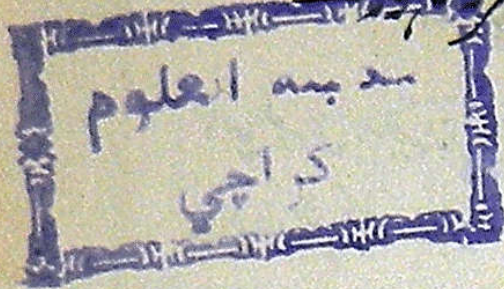 مدينه العلوم
کراچي